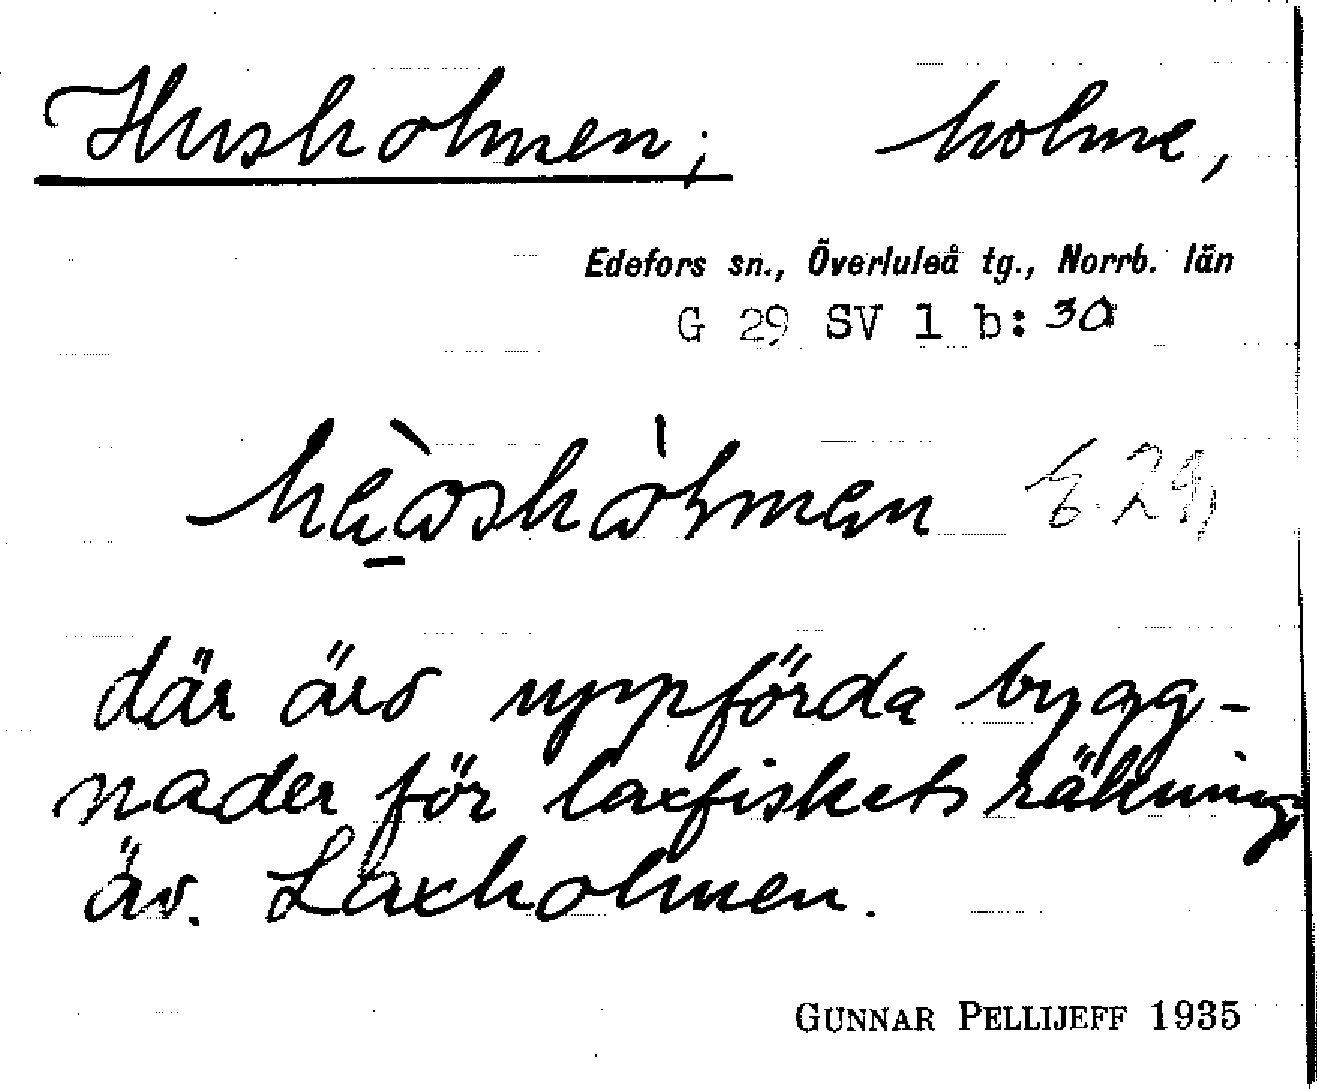 Husholmen, holme,
Edefors sn., Överluleå tg., Norrb. län
G 29 SV 1 b: 30
E. 29,
där äro uppförda bygg-
nader för laxfiskets räkning
äv. Laxholmen.
GUNNAR PELLIJEFF 1935